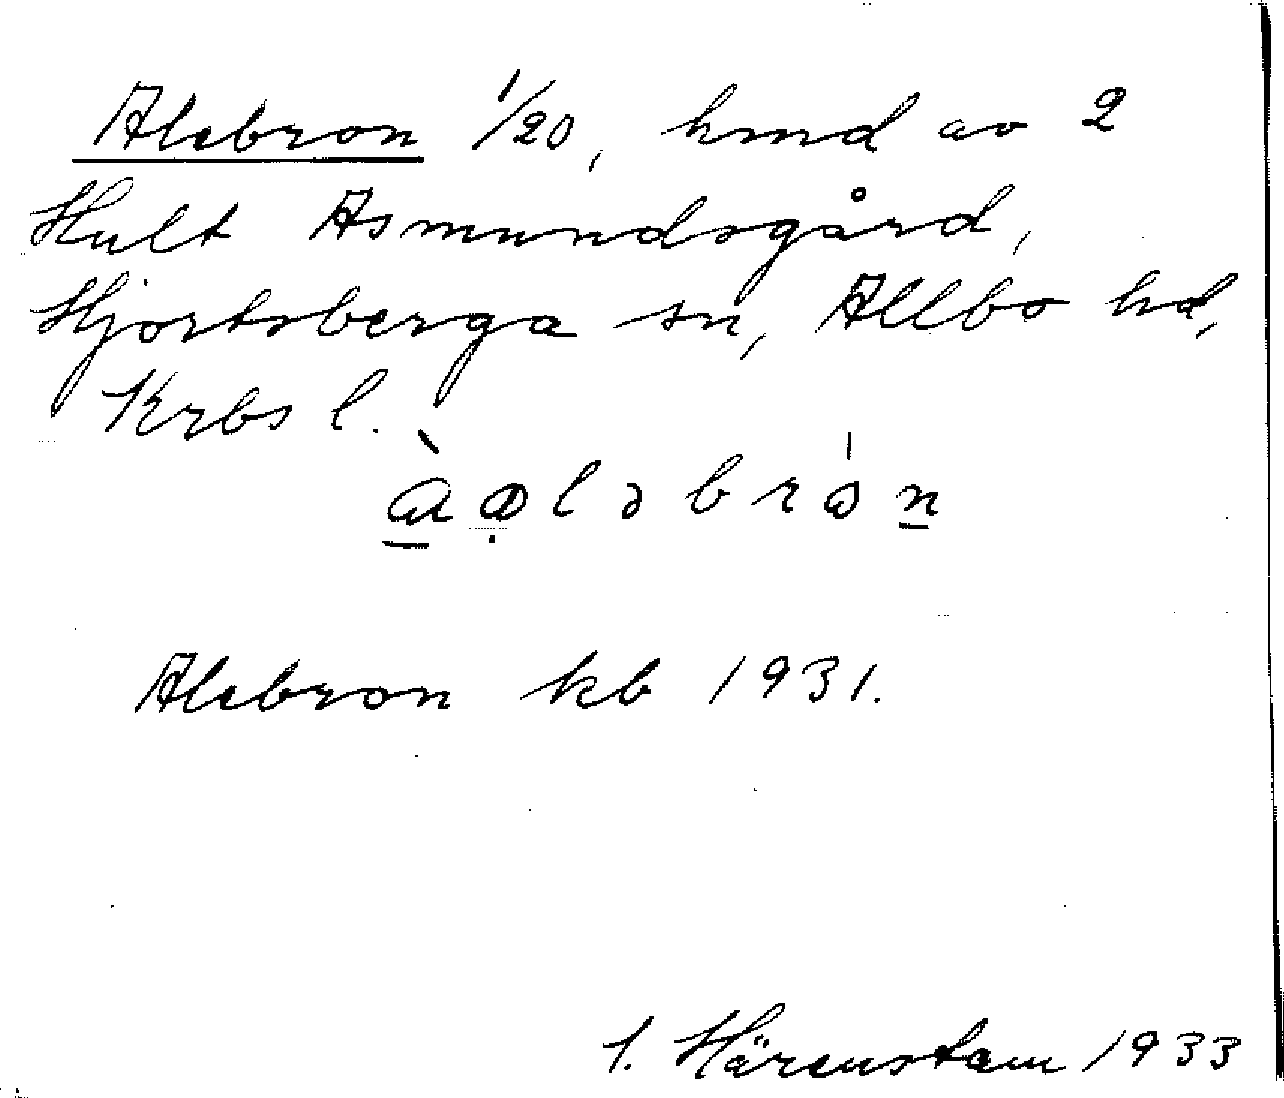 Alebron 1/20, hmd av 2
Hult Asmundsgård,
Hjortsberga sn, Allbo hd,
Krbs l.
Alebron kb 1931.
I. Härenstam 1933